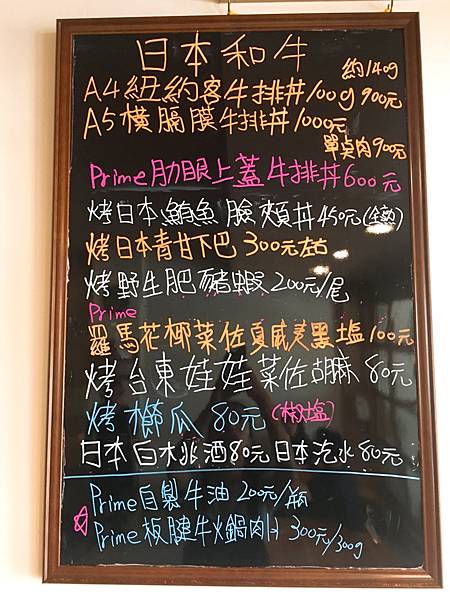 日本和牛
約140g
A4紐約客牛排丼100g 900元
A5橫膈膜牛排丼1000元
單桌肉900元
Prime肋眼上蓋牛排丼600元
烤日本鮪魚臉頰丼450元(全熟)
烤日本青甘下巴300元左右
烤野生肥豬蝦200元/尾
Prime
羅馬花椰菜佐夏威夷黑塩100元
烤台東娃娃菜佐胡麻80元
烤櫛瓜 80元(椒塩)
日本白木兆酒80元 日本汽水80元
Prime自製牛油200元/瓶
Prime板腱牛火鍋肉片300元/300g